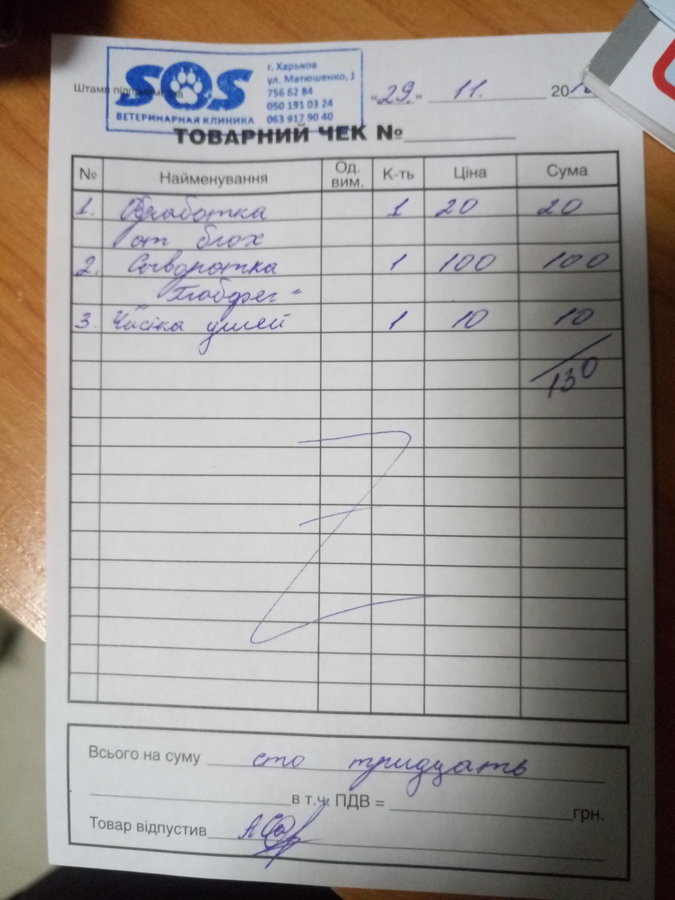 SOS
ВЕТЕРИНАРНАЯ КЛИНИКА
г. Харьков
ул. Матюшенко, 1
756 62 84
050 191 03 24
063 917 90 40
Штамп підприємства
«29.» 11. 20
ТОВАРНИЙ ЧЕК №
№ Найменування Од. вим. К-ть Ціна Сума
1. Обработка 1 20 20
от блох
2. Сыворотка 1 100 100
"Глобфел"
3. Чистка ушей 1 10 10
130
Всього на суму сто тридцать
в т.ч. ПДВ = грн.
Товар відпустив